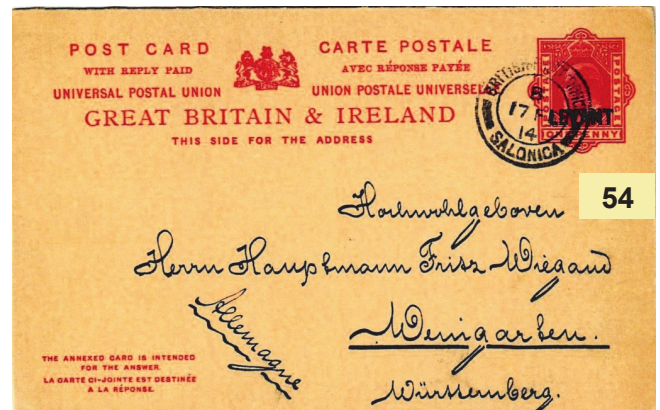 POST CARD
WITH REPLY PAID
UNIVERSAL POSTAL UNION
CARTE POSTALE
AVEC RÉPONSE PAYÉE
UNION POSTALE UNIVERSELLE
GREAT BRITAIN & IRELAND
THIS SIDE FOR THE ADDRESS
BRITISH
17
14
SALONICA
POSTAGE
LEVANT
ONE PENNY
54
Hochwohlgeboren
Herrn Hauptmann Fritz Wiegand
Weingarten.
Württemberg.
Allemagne
THE ANNEXED CARD IS INTENDED
FOR THE ANSWER.
LA CARTE CI-JOINTE EST DESTINÉE
A LA RÉPONSE.